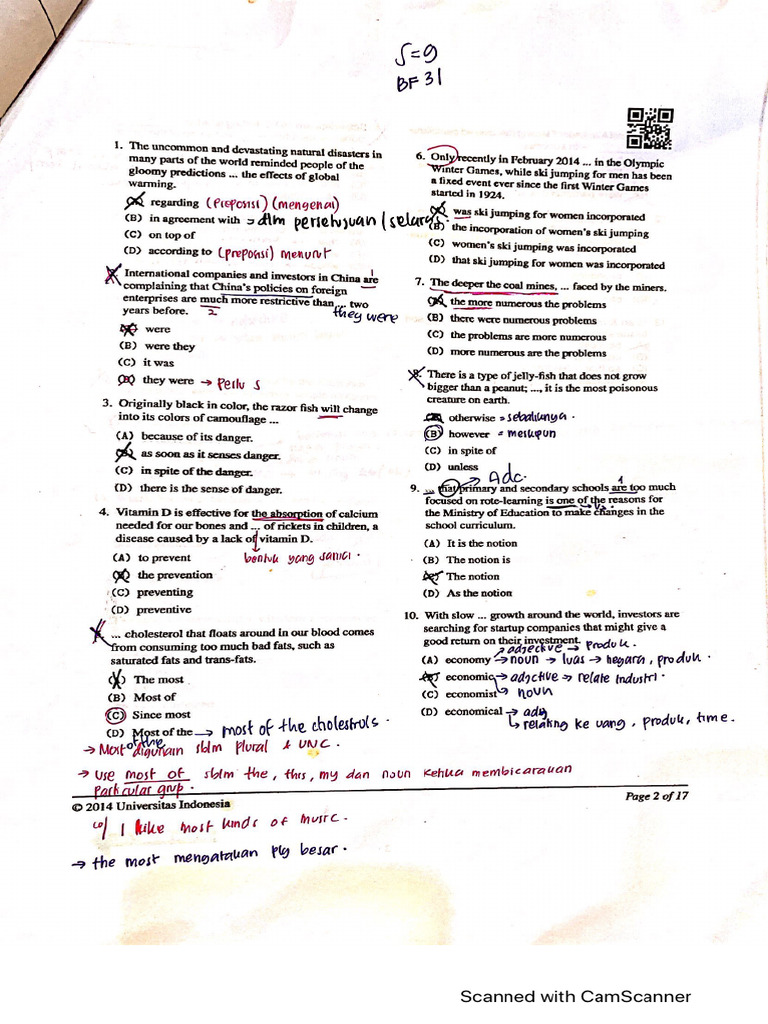 S = 9
BF 31
1. The uncommon and devastating natural disasters in
many parts of the world reminded people of the
gloomy predictions ... the effects of global
warming.
(A) regarding (preposisi) (mengenai)
(B) in agreement with => dlm persetujuan / selaras.
(C) on top of
(D) according to (preposisi) menurut
International companies and investors in China are 1
complaining that China's policies on foreign
enterprises are much more restrictive than ... two
years before. 2 they were
(A) were
(B) were they
(C) it was
(D) they were → perlu S
3. Originally black in color, the razor fish will change
into its colors of camouflage ...
(A) because of its danger.
(B) as soon as it senses danger.
(C) in spite of the danger.
(D) there is the sense of danger.
4. Vitamin D is effective for the absorption of calcium
needed for our bones and ... of rickets in children, a
disease caused by a lack of vitamin D.
(A) to prevent bentuk yang sama.
(B) the prevention
(C) preventing
(D) preventive
... cholesterol that floats around in our blood comes
from consuming too much bad fats, such as
saturated fats and trans-fats.
(A) The most
(B) Most of
(C) Since most
(D) Most of the → most of the cholestrols.
→ Most of the digunain sblm plural & UNC.
→ use most of sblm the, this, my dan noun ketika membicarakan
particular grup.
© 2014 Universitas Indonesia
I like most kinds of music.
→ the most mengatakan plg besar.
6. Only recently in February 2014 ... in the Olympic
Winter Games, while ski jumping for men has been
a fixed event ever since the first Winter Games
started in 1924.
(A) was ski jumping for women incorporated
(B) the incorporation of women's ski jumping
(C) women's ski jumping was incorporated
(D) that ski jumping for women was incorporated
7. The deeper the coal mines, ... faced by the miners.
(A) the more numerous the problems
(B) there were numerous problems
(C) the problems are more numerous
(D) more numerous are the problems
8. There is a type of jelly-fish that does not grow
bigger than a peanut; ..., it is the most poisonous
creature on earth.
(A) otherwise = sebaliknya.
(B) however = meskipun
(C) in spite of
(D) unless
Adc.
9. ... that primary and secondary schools are too much 1
focused on rote-learning is one of the reasons for
the Ministry of Education to make changes in the
school curriculum.
(A) It is the notion
(B) The notion is
(C) The notion
(D) As the notion
10. With slow ... growth around the world, investors are
searching for startup companies that might give a
good return on their investment.
adjective → produk.
(A) economy → noun → luas → negara, produk.
(B) economic → adjctive → relate industri.
(C) economist → noun
(D) economical → adj
↳ relating ke uang, produk, time.
Page 2 of 17
Scanned with CamScanner